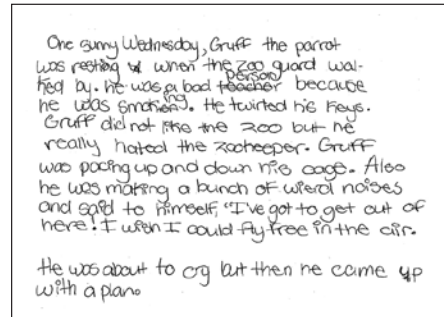 One sunny Wednesday, Gruff the parrot
was resting when the zoo guard wal-
ked by. he was a bad person because
he was smoking. He twirled his keys.
Gruff did not like the zoo but he
really hated the zookeeper. Gruff
was pacing up and down his cage. Also
he was making a bunch of wierd noises
and said to himself, "I've got to get out of
here! I wish I could fly free in the air.
He was about to cry but then he came up
with a plan.